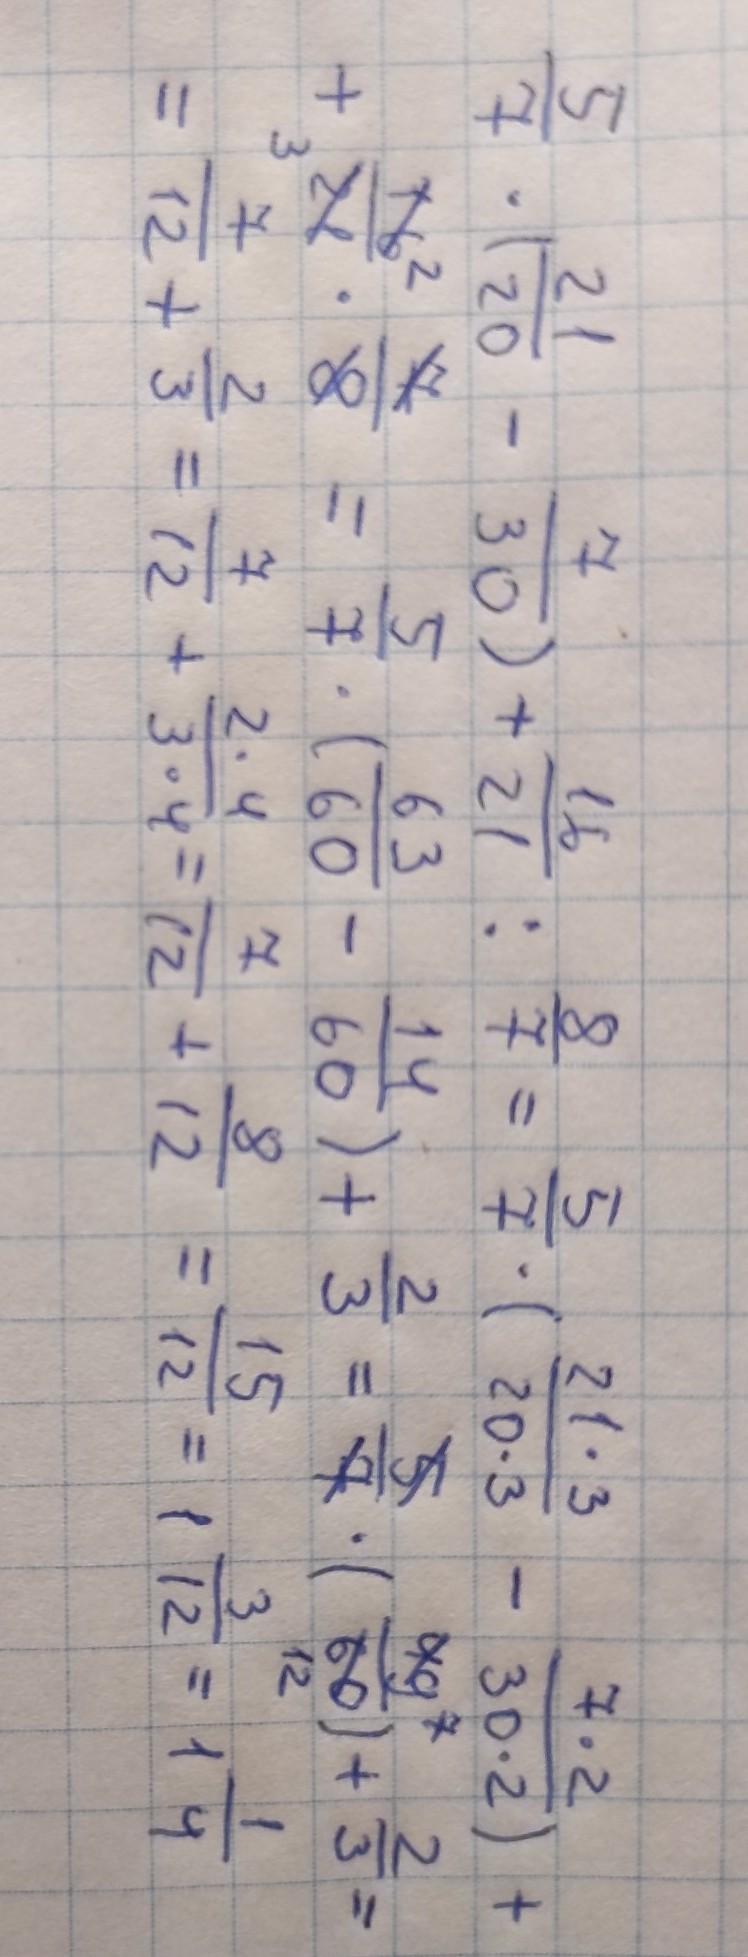 5/7 · (21/20 - 7/30) + 16/21 : 8/7 = 5/7 · (21·3/20·3 - 7·2/30·2) +
+ 16²/21₃ · 7/8 = 5/7 · (63/60 - 14/60) + 2/3 = 5/7 · (49⁷/60₁₂) + 2/3 =
= 7/12 + 2/3 = 7/12 + 2·4/3·4 = 7/12 + 8/12 = 15/12 = 1 3/12 = 1 1/4